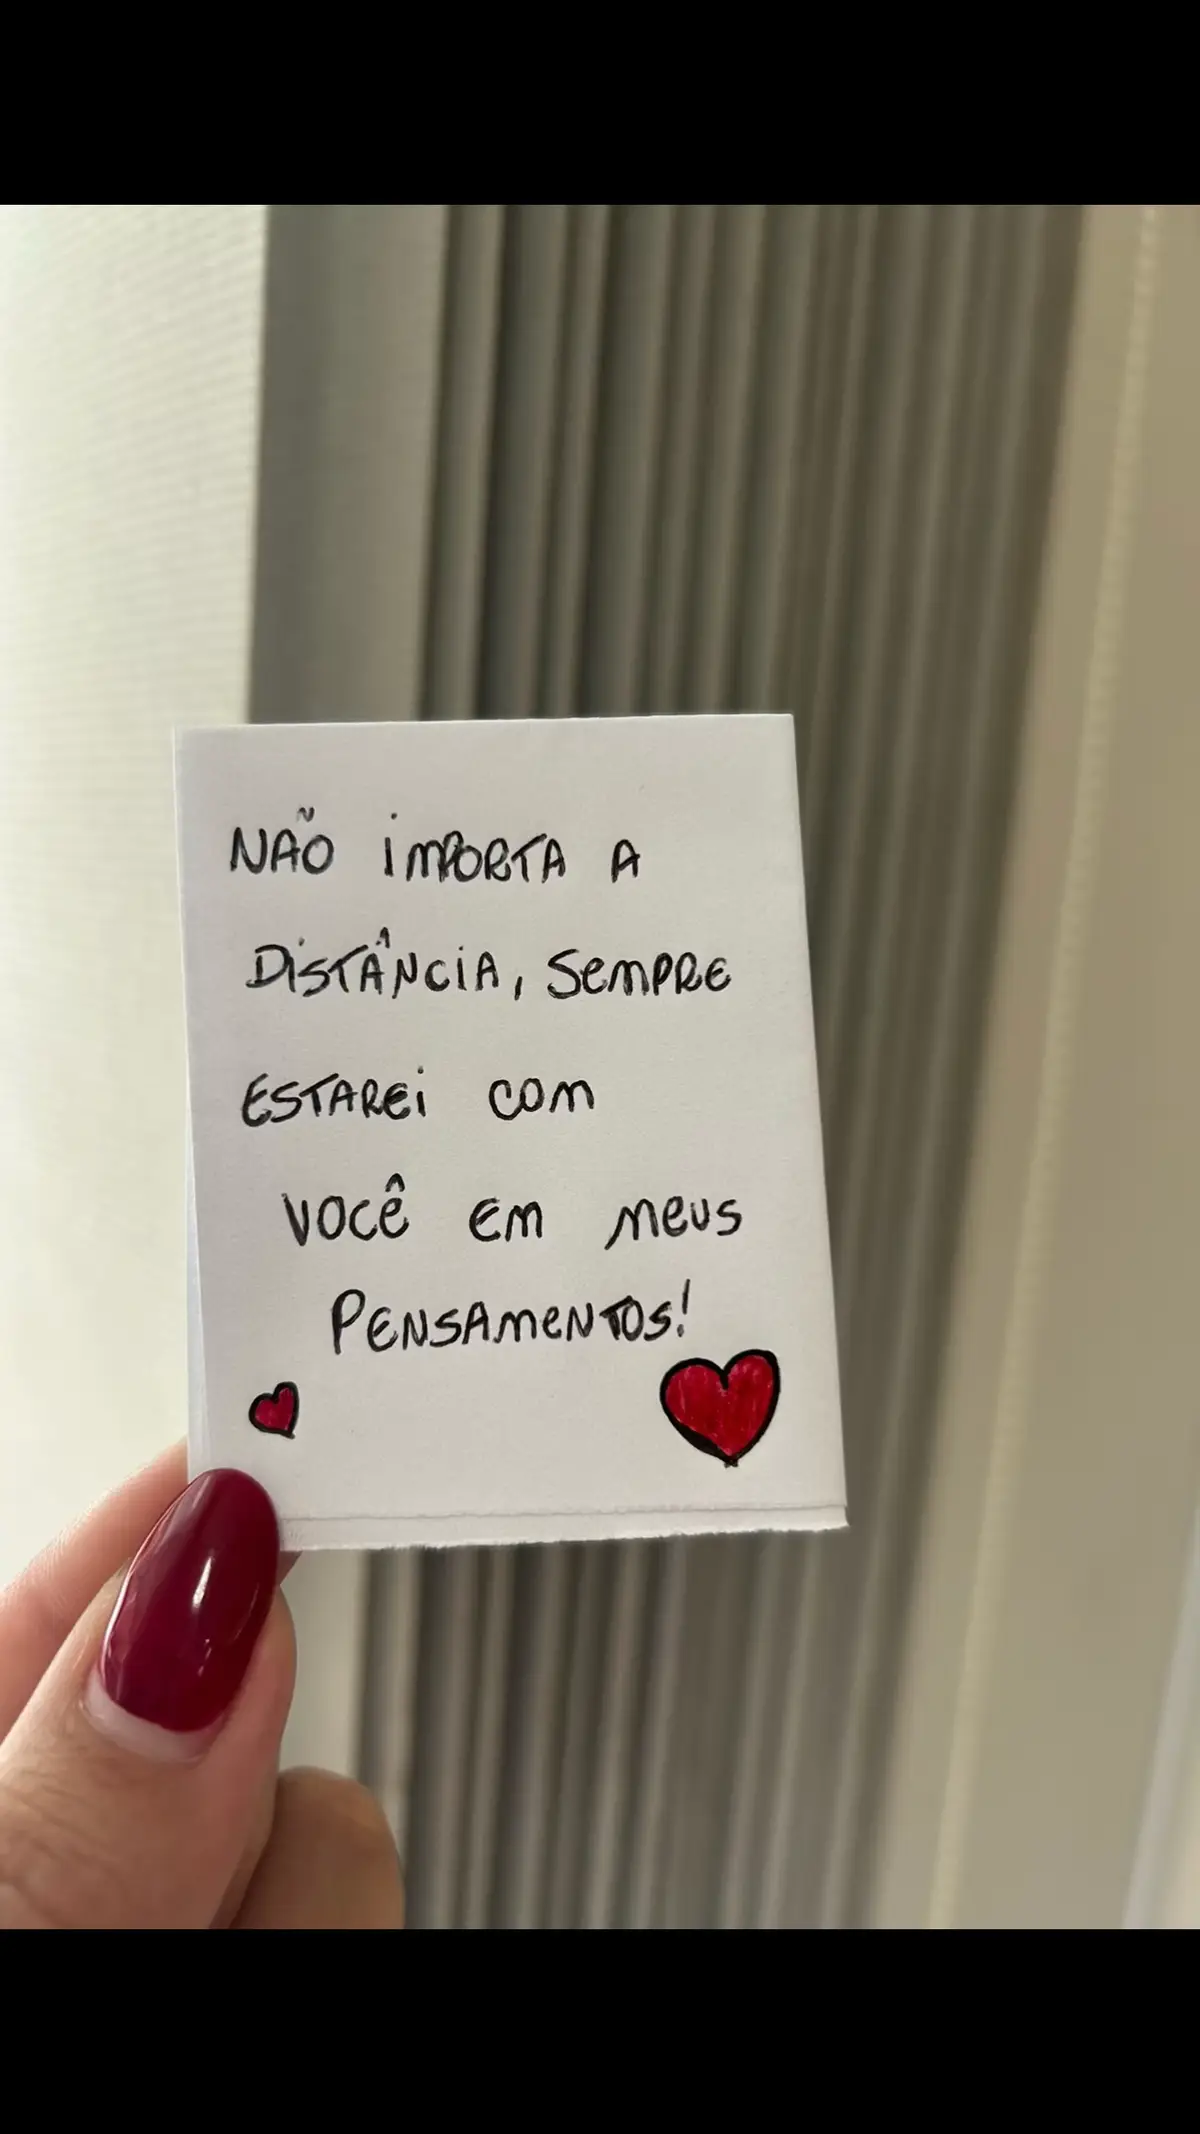 NÃO IMPORTA A
DISTÂNCIA, SEMPRE
ESTAREI COM
VOCÊ EM MEUS
PENSAMENTOS!